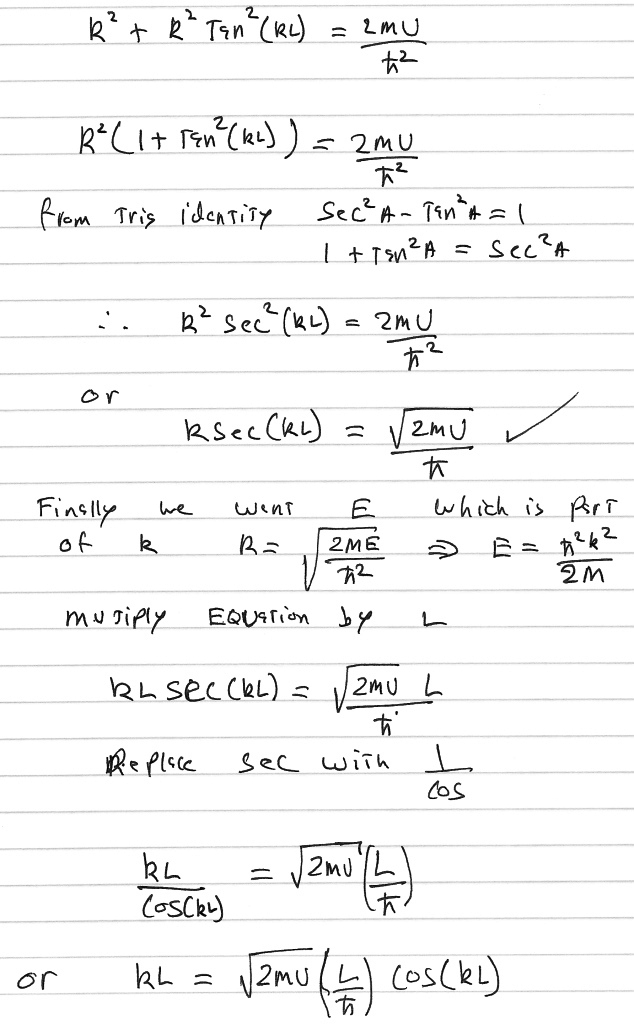 k² + k² Tan²(kL) = 2mU/ħ²
k²(1 + Tan²(kL)) = 2mU/ħ²
from Trig identity Sec²A - Tan²A = 1
1 + Tan²A = Sec²A
∴ k² Sec²(kL) = 2mU/ħ²
or
k sec(kL) = √(2mU)/ħ ✓
Finally we want E which is part
of k k = √(2ME/ħ²) ⇒ E = ħ²k²/2M
mutiply Equation by L
kL sec(kL) = √(2mU) L/ħ
Replace sec with 1/cos
kL/Cos(kL) = √(2mU) (L/ħ)
or kL = √(2mU) (L/ħ) cos(kL)